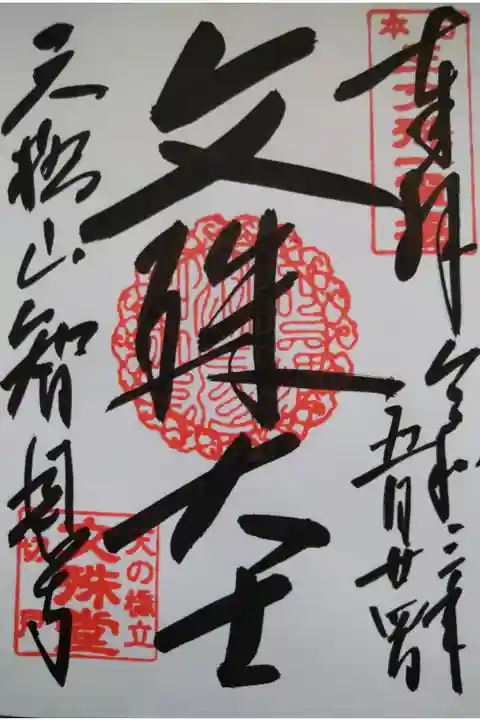 奉拝
令和 年
五月廿四日
文殊大士
天橋山智恩寺
天の橋立
文殊堂
切戸